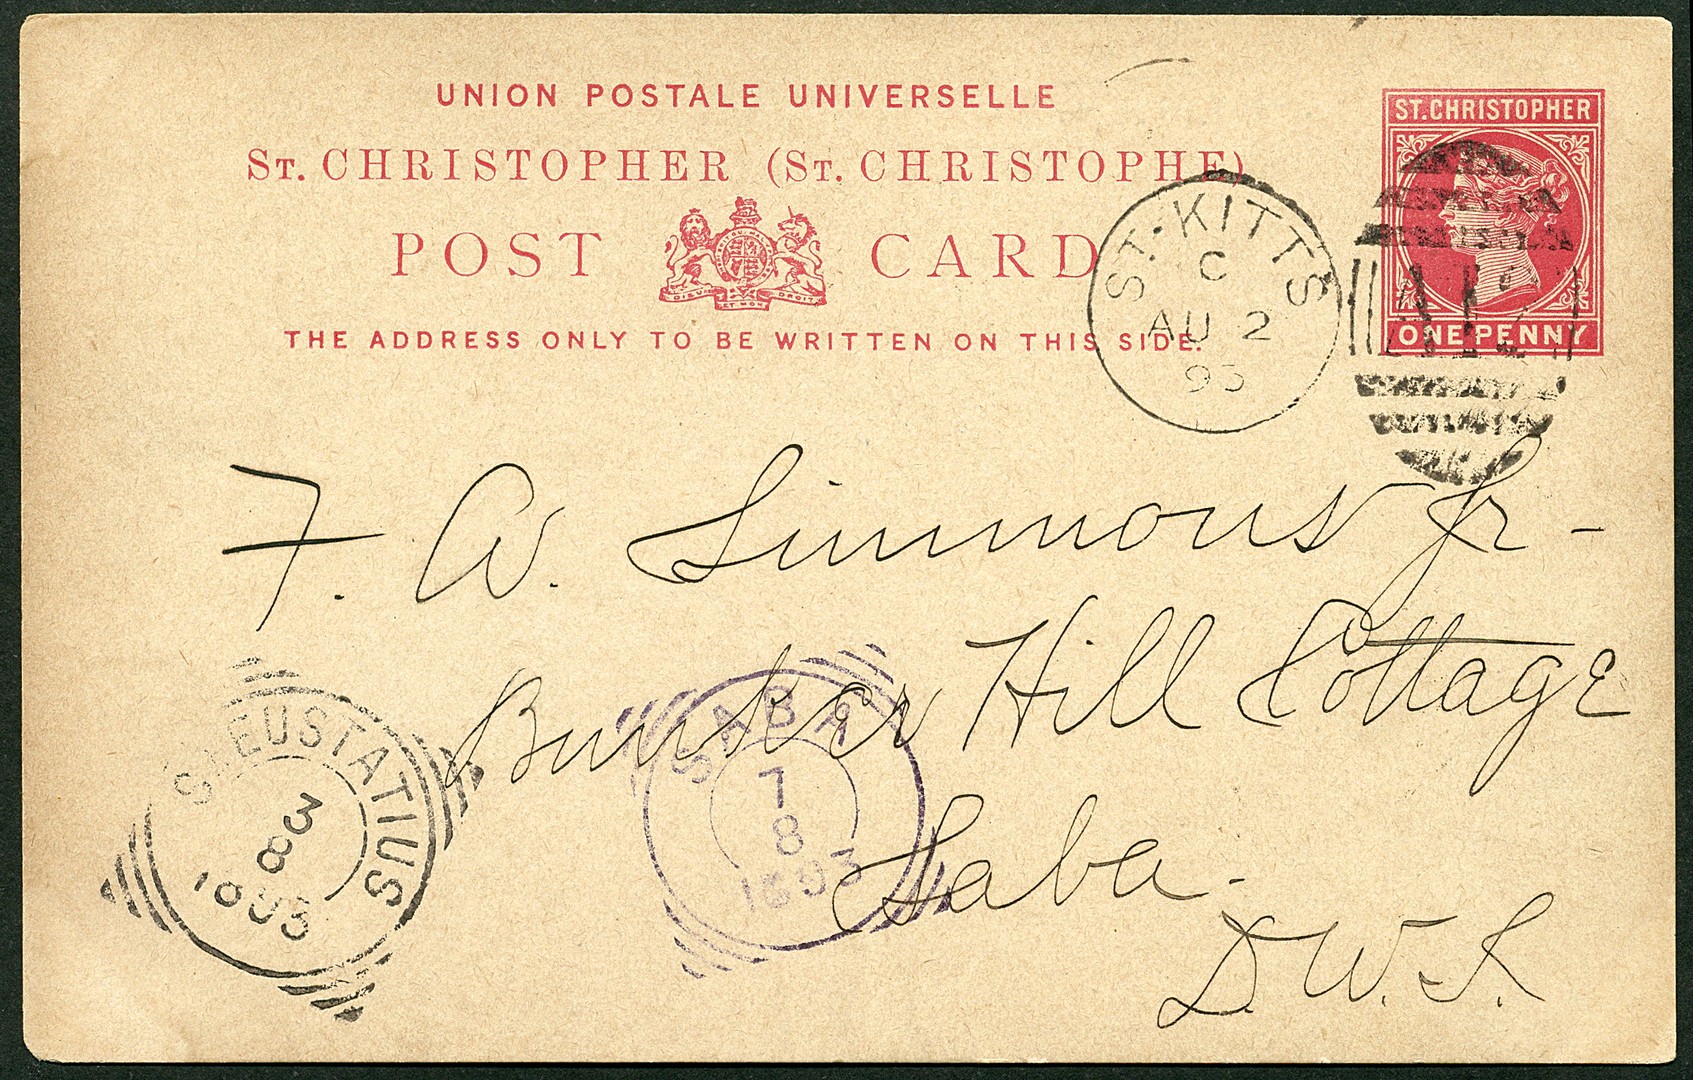 UNION POSTALE UNIVERSELLE
ST. CHRISTOPHER (ST. CHRISTOPHE)
POST CARD
THE ADDRESS ONLY TO BE WRITTEN ON THIS SIDE.
ST. CHRISTOPHER
ONE PENNY
ST. KITTS
C
AU 2
93
F. W. Simmons Jr-
Bunker Hill Cottage
Saba.
D.W.I.
ST EUSTATIUS
3
8
1893
SABA
7
8
1893